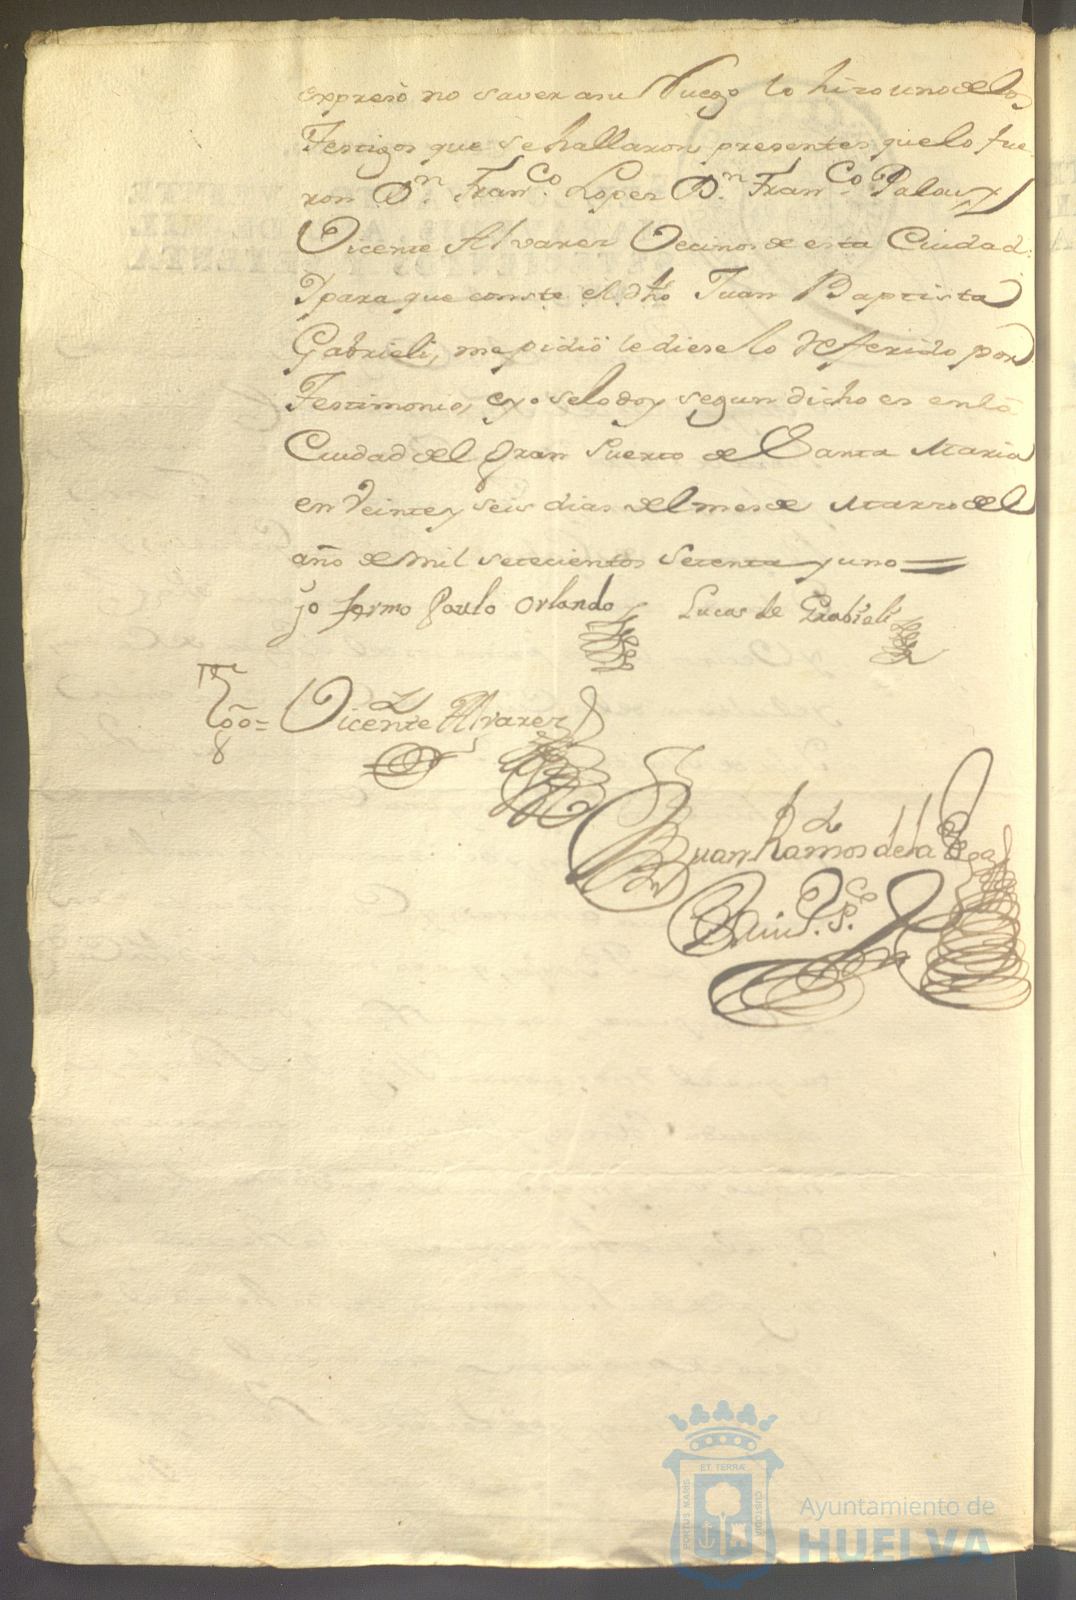 expresó no saver a su Ruego lo hizo uno de los
Testigos que se hallaron presentes que lo fue
ron Dn. Franco. Lopez Dn. Franco. Palau y
Vicente Alvarez Vecinos de esta Ciudad.
Y para que conste el dho Juan Baptista
Gabrieli, me pidió le diese lo referido por
Testimonio, e yo se lo doy segun dicho es en la
Ciudad del Gran Puerto de Santa Maria
en Veinte y seis dias del mes de Marzo del
año de mil setecientos setenta y uno =
jo fermo Paulo Orlando Lucas de Grabieli
Tgo = Vicente Alvarez
Juan Ramos de la Vega
PORTUS MARIS ET TERRÆ CUSTODIA
Ayuntamiento de
HUELVA